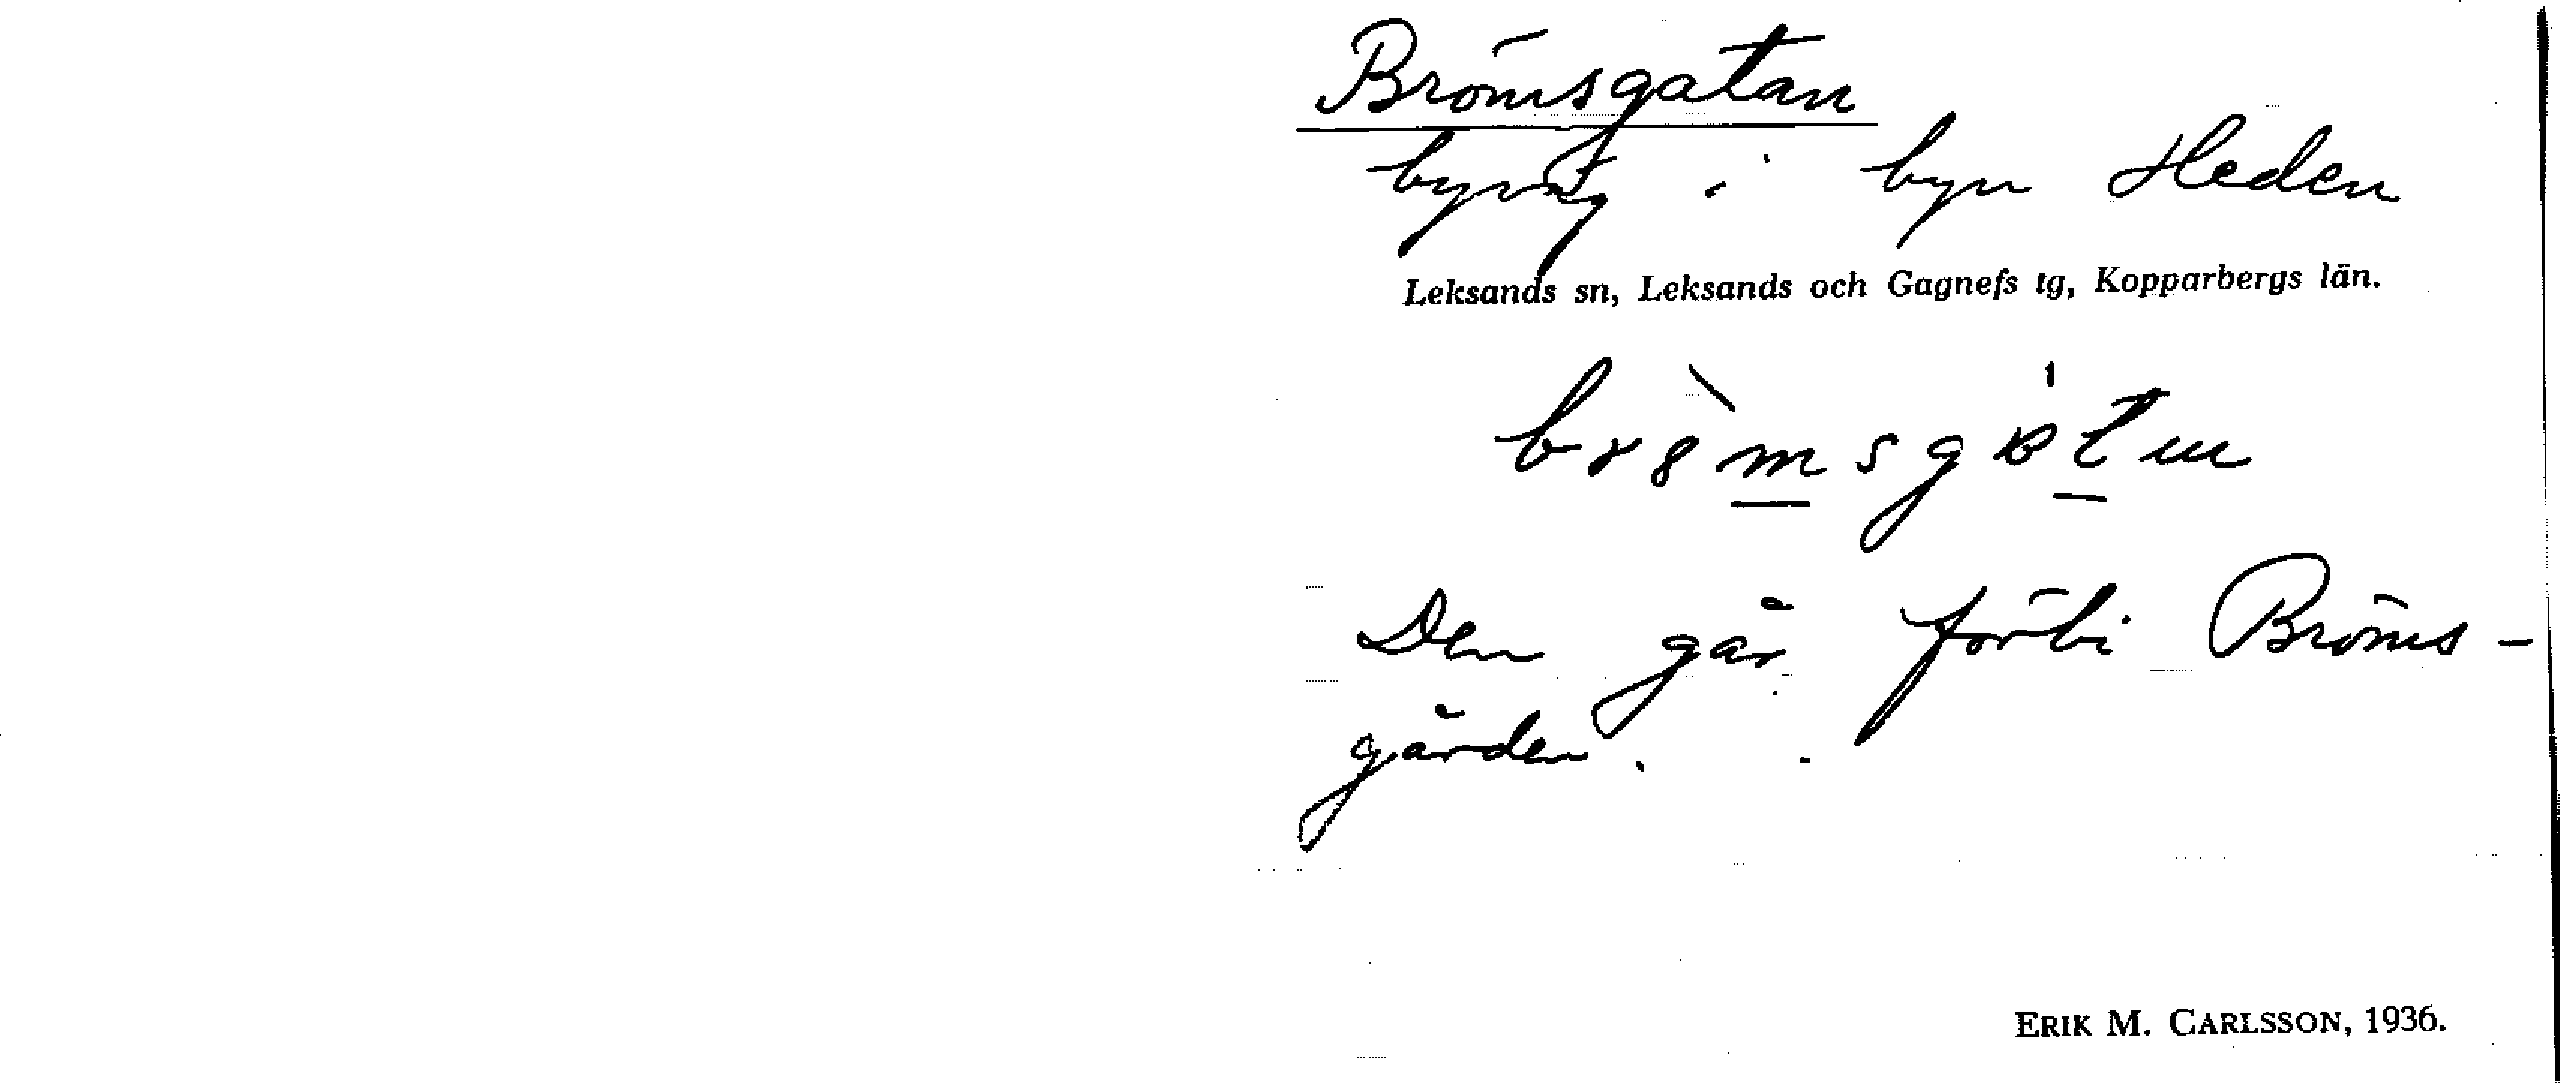 Brömsgatan
byväg i byn Heden
Leksands sn, Leksands och Gagnefs tg, Kopparbergs län.
Den går förbi Bröms-
gården.
ERIK M. CARLSSON, 1936.